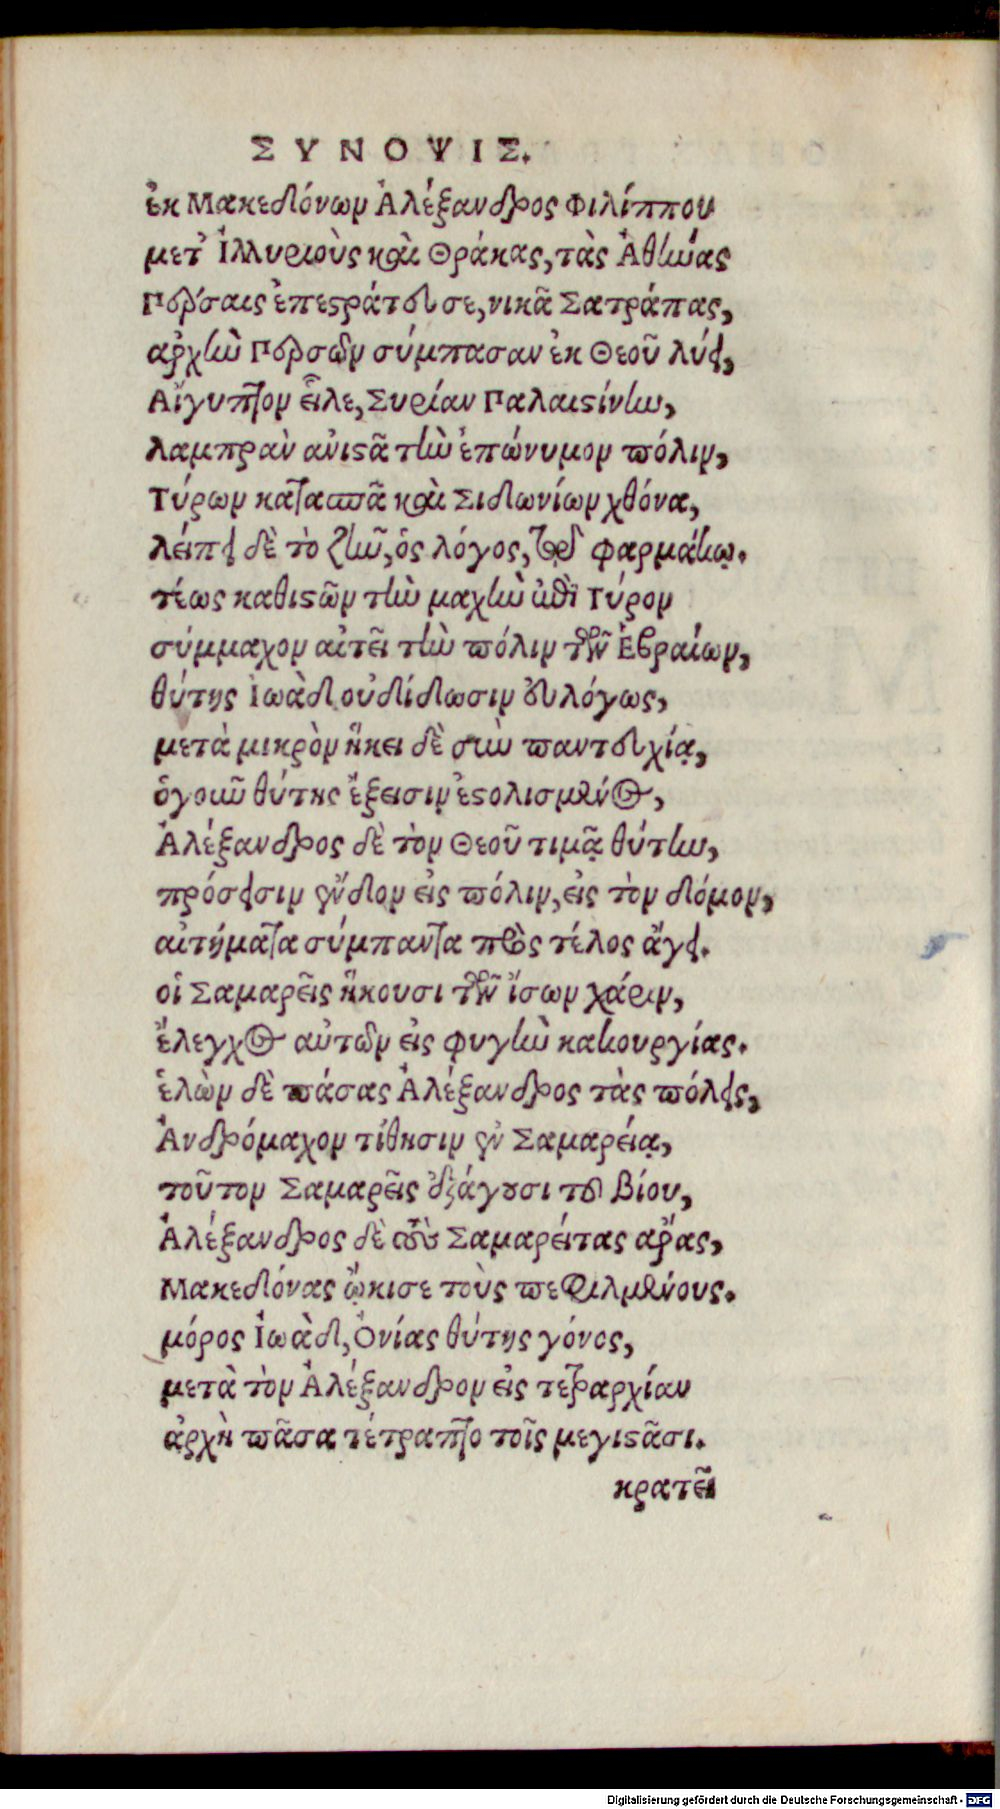 ΣΥΝΟΨΙΣ.
ἐκ Μακεδόνων Ἀλέξανδρος Φιλίππου
μετ' Ἰλλυριοὺς καὶ Θράκας, τὰς Ἀθήνας
Πέρσαις ἐπεστράτευσε, νικᾷ Σατράπας,
ἀρχὴν Περσῶν σύμπασαν ἐκ Θεοῦ λύει,
Αἴγυπτον εἷλε, Συρίαν Παλαιστίνην,
λαμπρὰν ἀνιστᾷ τὴν ἐπώνυμον πόλιν,
Τύρων κατασπᾷ καὶ Σιδωνίων χθόνα,
λείπει δὲ τὸ ζῆν, ὡς λόγος, φαρμάκῳ.
τέως καθιστῶν τὴν μάχην ἐπὶ Τύρον
σύμμαχον αἰτεῖ τὴν πόλιν τῶν Ἑβραίων,
θύτης Ἰωὰδ οὐ δίδωσιν εὐλόγως,
μετὰ μικρὸν ἥκει δὲ σὺν παντευχίᾳ,
ὁ γοῦν θύτης ἔξεισιν ἐστολισμένος,
Ἀλέξανδρος δὲ τὸν Θεοῦ τιμᾷ θύτην,
πρόσεισιν ἔνδον εἰς πόλιν, εἰς τὸν δόμον,
αἰτήματα σύμπαντα πρὸς τέλος ἄγει.
οἱ Σαμαρεῖς ἥκουσι τῶν ἴσων χάριν,
ἔλεγχος αὐτῶν εἰς φυγὴν κακουργίας.
ἑλὼν δὲ πάσας Ἀλέξανδρος τὰς πόλεις,
Ἀνδρόμαχον τίθησιν ἐν Σαμαρείᾳ,
τοῦτον Σαμαρεῖς ἐξάγουσι τοῦ βίου,
Ἀλέξανδρος δὲ τοὺς Σαμαρείτας ἄρας,
Μακεδόνας ᾤκισε τοὺς πεφιλμένους.
μόρος Ἰωὰδ, Ὀνίας θύτης γόνος,
μετὰ τὸν Ἀλέξανδρον εἰς τετραρχίαν
ἀρχὴ πᾶσα τέτραπτο τοῖς μεγιστᾶσι.
κρατεῖ
Digitalisierung gefördert durch die Deutsche Forschungsgemeinschaft - DFG